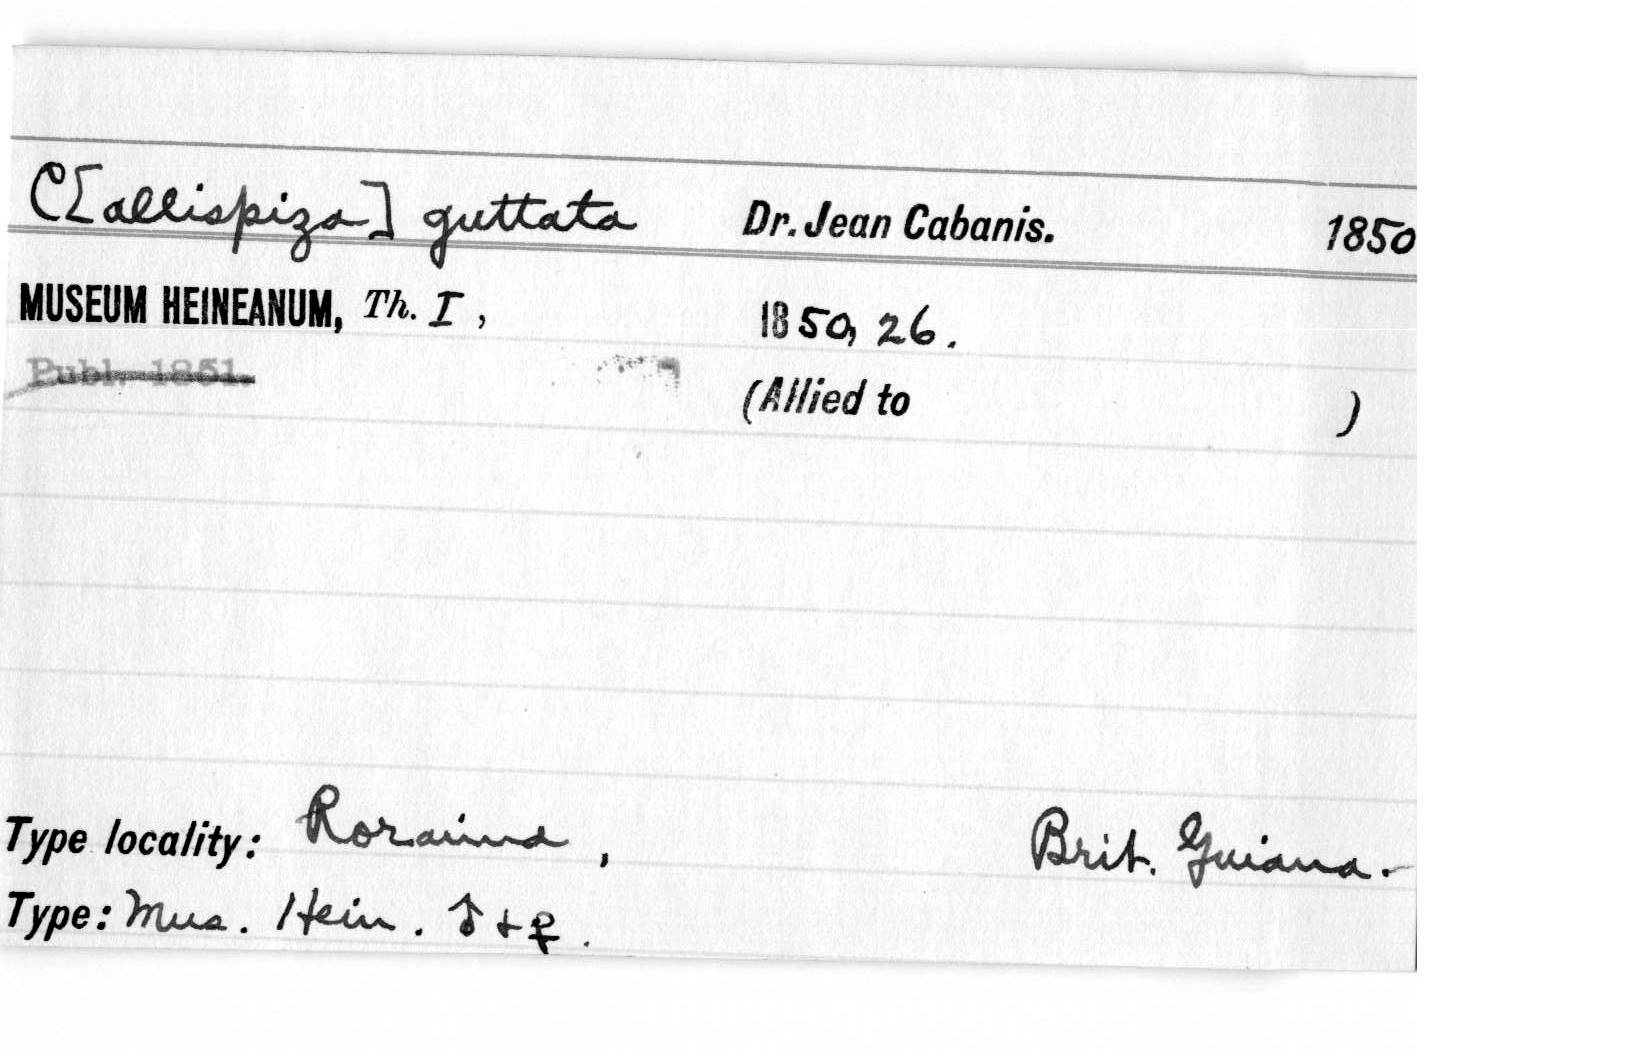 C[allispiza] guttata Dr. Jean Cabanis. 1850
MUSEUM HEINEANUM, Th. I, 1850, 26.
Publ. 1851.
(Allied to )
Type locality: Roraima, Brit. Guiana.
Type: Mus. Hein. ♂ + ♀.